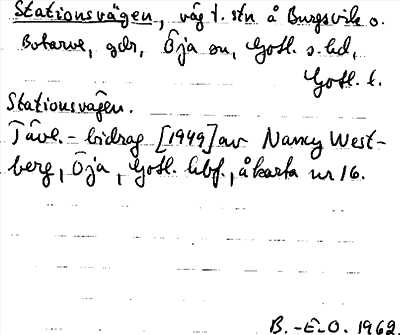 Stationsvägen, väg t. stn å Burgsvik o.
Botarve, gdr, Öja sn, Gotl. s. hd,
Gotl. l.
Stationsvägen.
Tävl.-bidrag [1949] av Nancy West-
berg, Öja, Gotl. hbf., å karta nr 16.
B.-E.O. 1962.